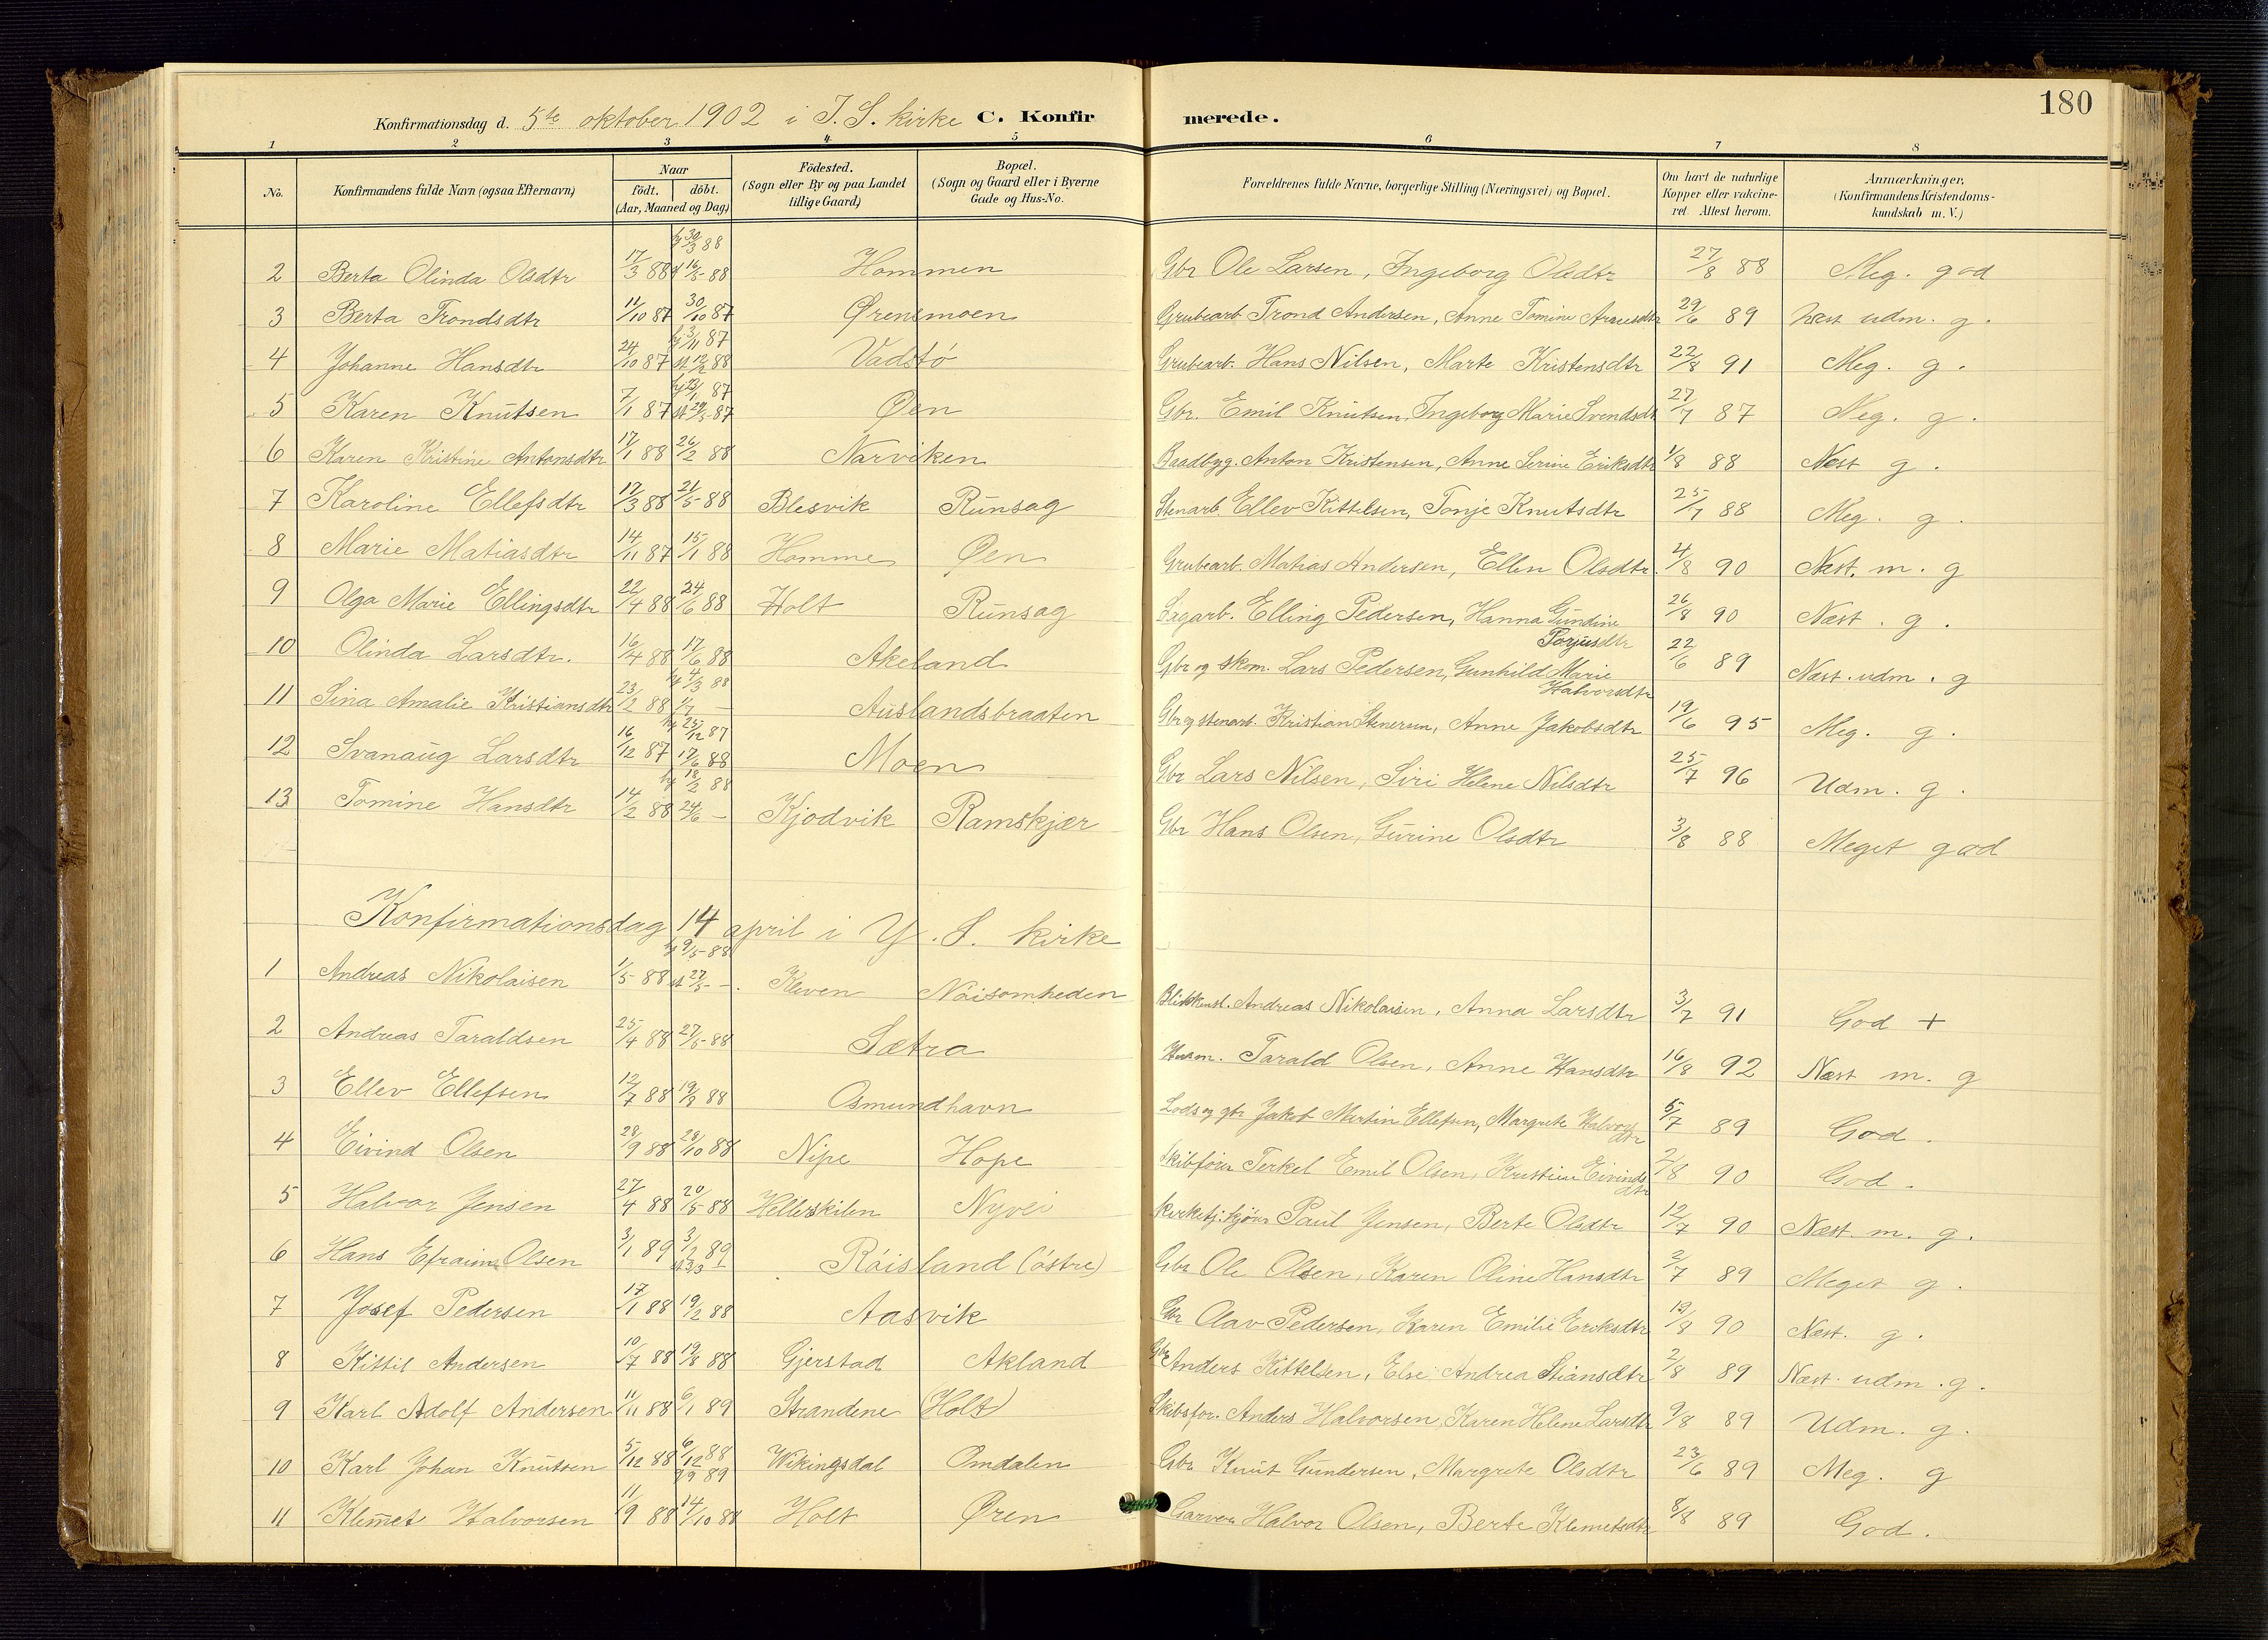 180
Konfirmationsdag d. 5te oktober 1902 i I. S. kirke C. Konfirmerede.
1 2 3 4 5 6 7 8
No. Konfirmandens fulde Navn (ogsaa Efternavn) Naar födt. döbt. (Aar, Maaned og Dag) Födested. (Sogn eller By og paa Landet tillige Gaard) Bopæl. (Sogn og Gaard eller i Byerne Gade og Hus-No. Forældrenes fulde Navne, borgerlige Stilling (Næringsvei) og Bopæl. Om havt de naturlige Kopper eller vakcineret. Attest herom. Anmærkninger. (Konfirmandens Kristendomskundskab m. V.)
2 Berta Olinda Olsdtr 17/3 88 hj 30/3 88 16/5 88 Hommen Gbr Ole Larsen, Ingeborg Olsdtr 27/8 88 Meg. god
3 Berta Trondsdtr 11/10 87 30/10 87 Ørensmoen Grubearb. Trond Andersen, Anne Tomine 29/6 89 Næst udm. g.
4 Johanne Hansdtr 24/10 87 hj 3/11 87 st 12/2 88 Vadstö Grubearb. Hans Nilsen, Marte Kristensdtr 22/8 91 Meg. g.
5 Karen Knutsen 7/1 87 hj 23/1 87 st 29/5 87 Øen Gbr. Emil Knutsen, Ingeborg Marie Svendsdtr 27/7 87 Meg. g.
6 Karen Kristine Antonsdtr 17/1 88 26/2 88 Narviken Baadbyg. Anton Kristensen, Anne Serine Eriksdtr 1/8 88 Næst g.
7 Karoline Ellefsdtr 17/3 88 21/5 88 Blesvik Runsag Stenarb. Ellev Kittelsen, Tonje Knutsdtr 25/7 88 Meg. g.
8 Marie Matiasdtr 14/11 87 15/1 88 Homme Øen Grubearb. Matias Andersen, Ellen Olsdtr. 4/8 90 Næst. m. g
9 Olga Marie Ellingsdtr 22/4 88 24/6 88 Holt Runsag Sagarb. Elling Pedersen, Hanna Gundine Torjusdtr 26/8 90 Næst. g.
10 Olinda Larsdtr. 16/4 88 17/6 88 Akeland Gbr og skom. Lars Pedersen, Gunhild Marie Halvorsdtr 22/6 89 Næst. udm. g
11 Sina Amalie Kristiansdtr 23/2 88 hj 4/3 88 1/7 – Auslandsbraaten Gbr og stenarb. Kristian Stenersen, Anne Jakobsdtr 19/6 95 Meg. g.
12 Svanaug Larsdtr 16/12 87 hj 25/12 87 17/6 88 Moen Gbr Lars Nilsen, Siri Helene Nilsdtr 25/7 96 Udm. g.
13 Tomine Hansdtr 14/2 88 hj 18/2 88 24/6 – Kjodvik Ramskjær Gbr Hans Olsen, Gurine Olsdtr 3/8 88 Meget god
Konfirmationsdag 14 april i Y. S. kirke
1 Andreas Nikolaisen 1/5 88 hj 9/5 88 st 27/5 – Kleven Nöisomheden Andreas Nikolaisen, Anna Larsdtr 3/7 91 God +
2 Andreas Taraldsen 25/4 88 27/5 88 Sætra Husm. Tarald Olsen, Anne Hansdtr 16/8 92 Næst m. g
3 Ellev Ellefsen 12/7 88 19/8 88 Osmundhavn Lods og gbr Jakob Martin Ellefsen, Margrete Halvorsdtr 5/7 89 God.
4 Eivind Olsen 28/9 88 28/10 88 Nipe Hope Skibsfører Terkel Emil Olsen, Kristine Eivindsdtr 2/8 90 God.
5 Halvor Jensen 27/4 88 20/5 88 Hellerskilen Nyvei Paul Jensen, Berte Olsdtr 12/7 90 Næst. m. g.
6 Hans Efraim Olsen 3/1 89 3/2 89 Röisland (östre) Gbr Ole Olsen, Karen Oline Hansdtr 2/7 89 Meget g.
7 Josef Pedersen 17/1 88 19/2 88 Aasvik Gbr Olav Pedersen, Karen Emilie Eriksdtr 12/8 90 Næst. g.
8 Kittil Andersen 10/7 88 19/8 88 Gjerstad Akland Gbr Anders Kittelsen, Else Andrea Stiansdtr 2/8 89 Næst. udm. g.
9 Karl Adolf Andersen 11/11 88 6/1 89 Strandene (Holt) Skibsför. Anders Halvorsen, Karen Helene Larsdtr 9/8 89 Udm. g.
10 Karl Johan Knutsen 5/12 88 6/12 88 Wikingsdal Omdalen Gbr Knut Gundersen, Margrete Olsdtr 23/6 89 Meg. g
11 Klemet Halvorsen 11/9 88 14/10 88 Holt Øren Garver Halvor Olsen, Berte Klemetsdtr 8/8 89 God.